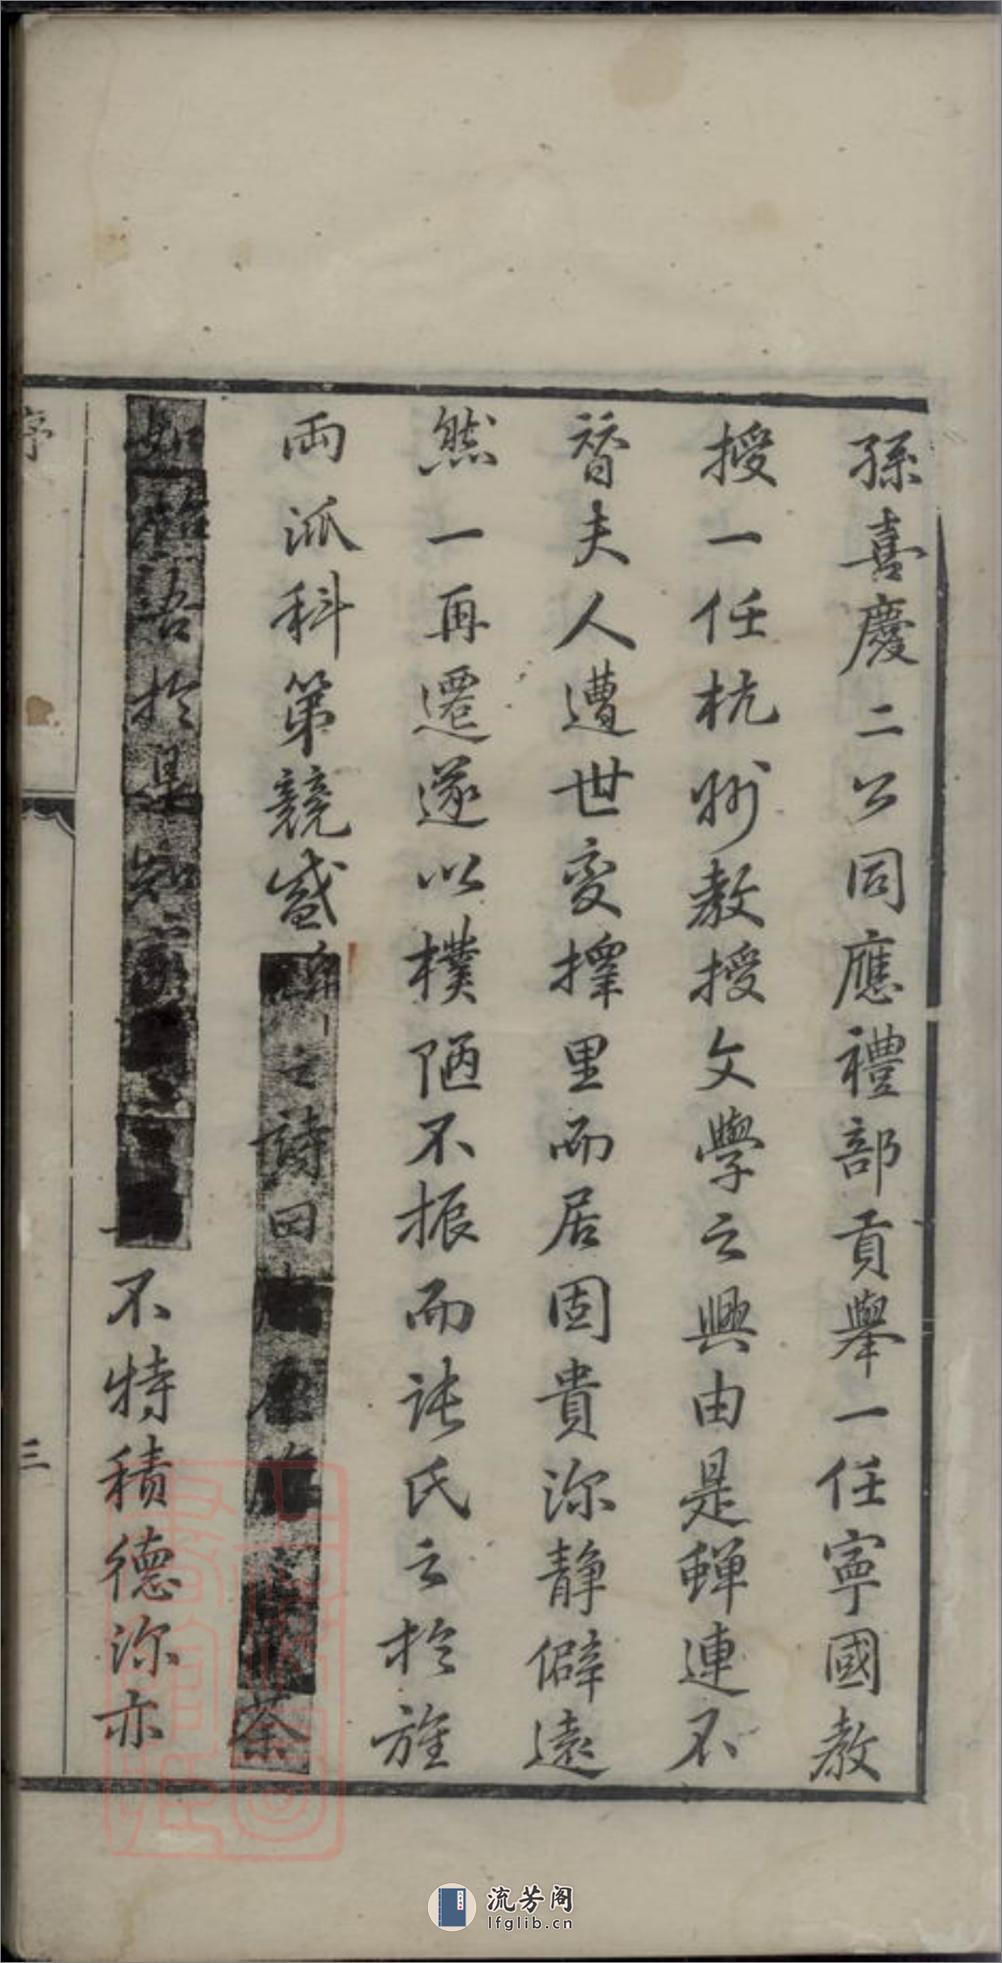 孫喜慶二公同應禮部貢舉一任寧國教
授一任杭州教授文學之興由是蟬連不
替夫人遭世變擇里而居固貴深靜僻遠
然一再遷遂以樸陋不振而訧氏之於旌
兩派科第競盛 之詩曰 荼
如 吾於是知 不特積德深亦
序
三
流芳阁
lfglib.cn